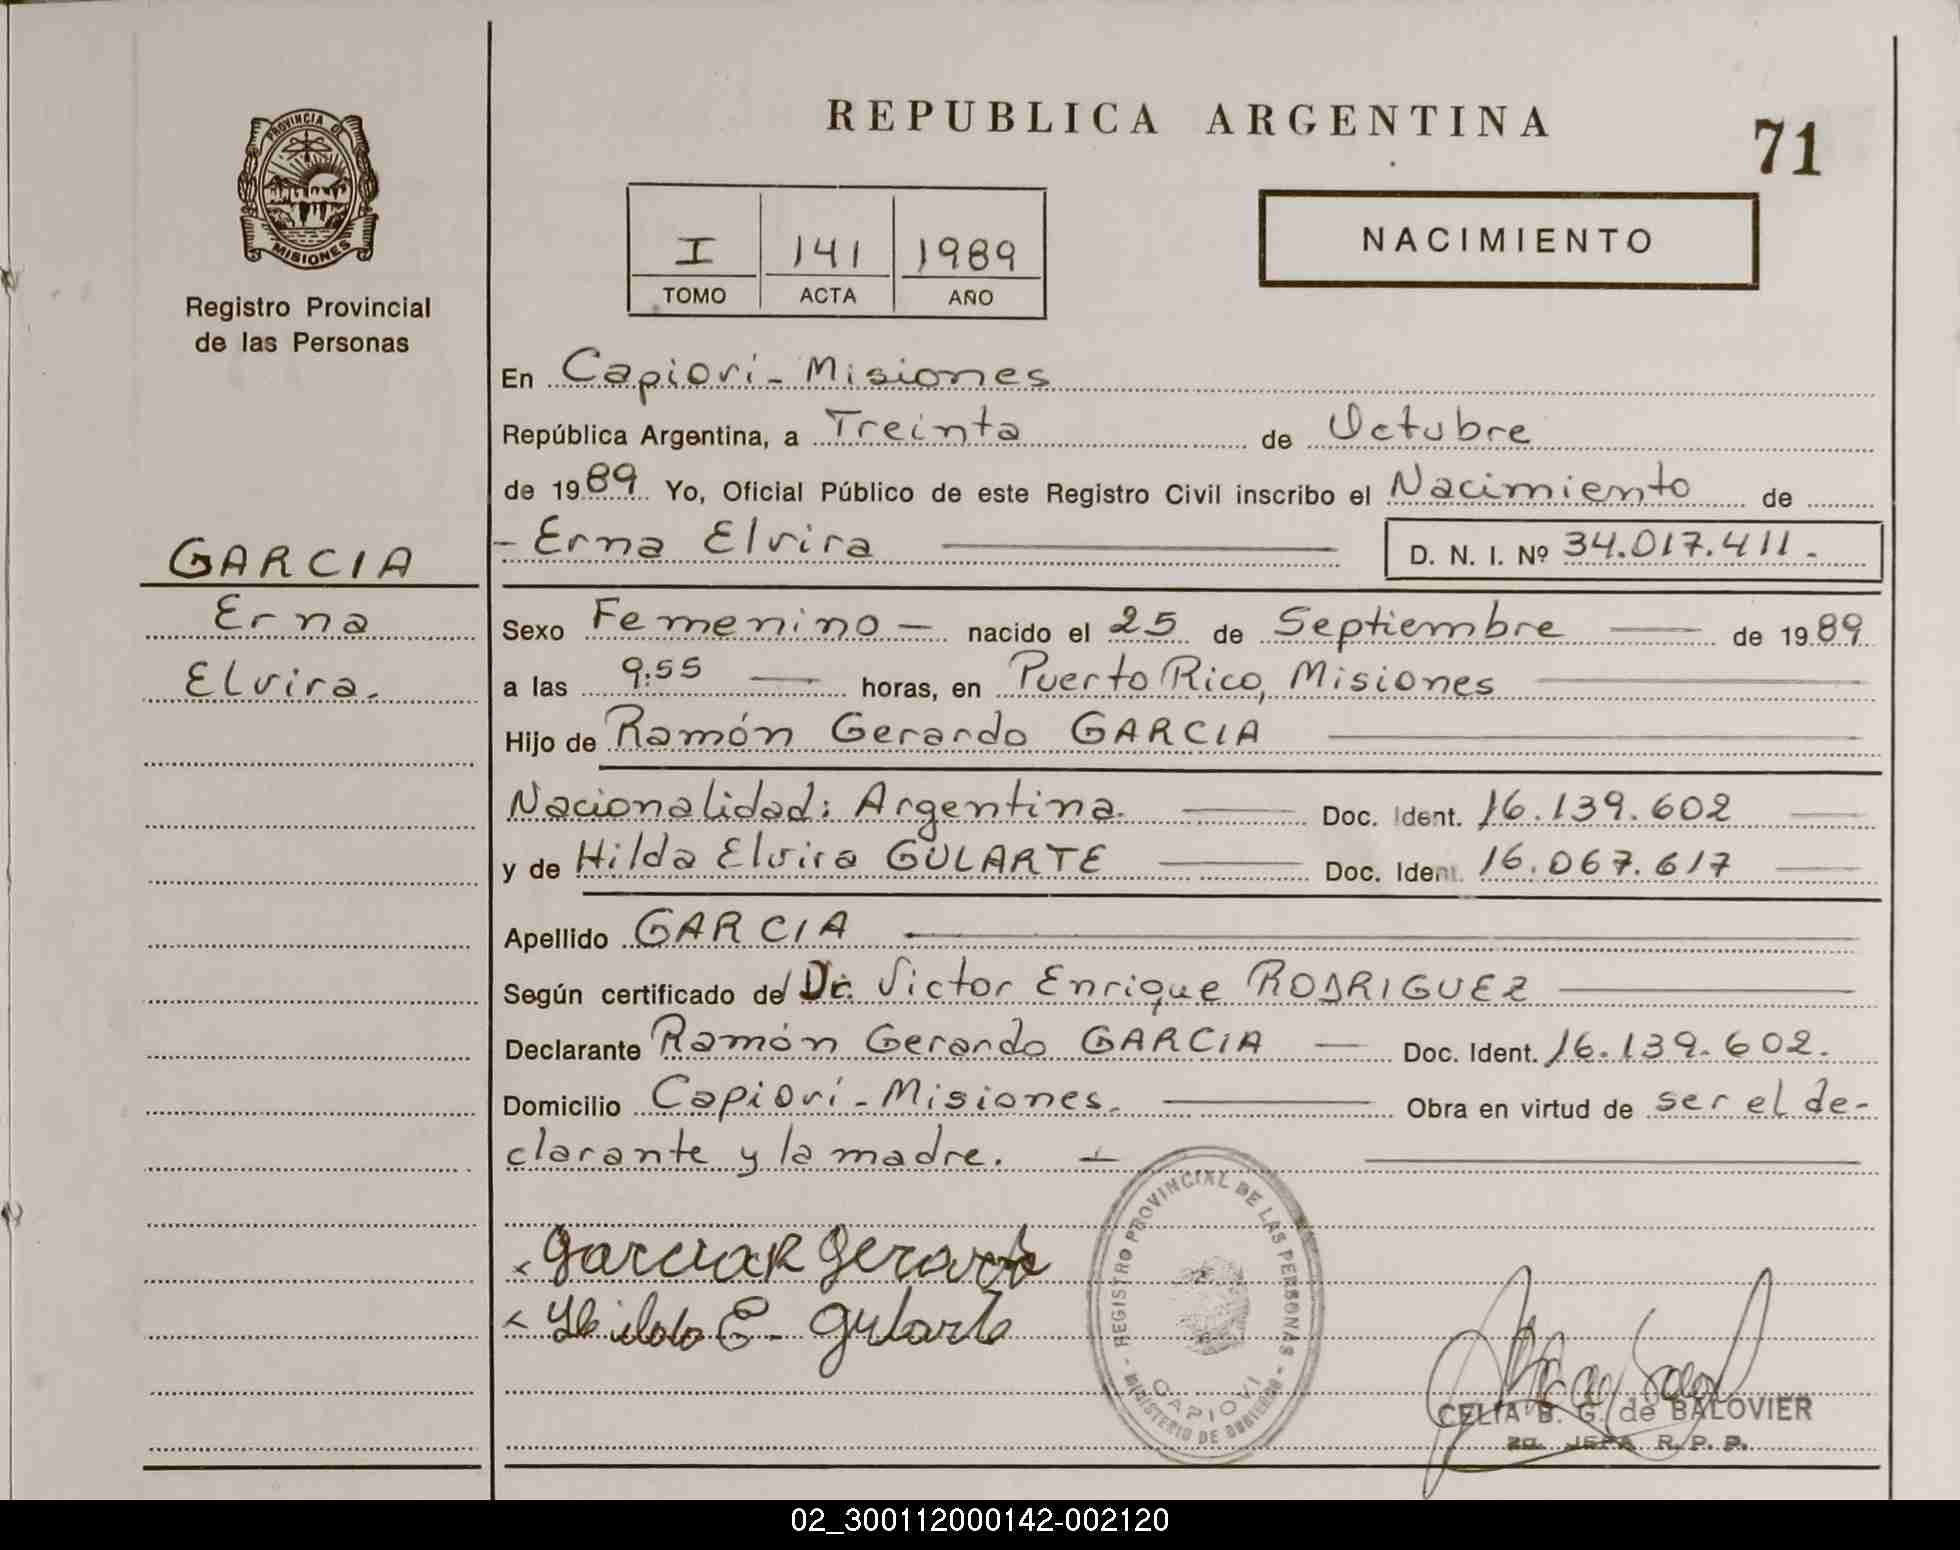 PROVINCIA DE
MISIONES
Registro Provincial
de las Personas
GARCIA
Erna
Elvira.
REPUBLICA ARGENTINA
71
I 141 1989
TOMO ACTA AÑO
NACIMIENTO
En Capioví - Misiones
República Argentina, a Treinta de Octubre
de 1989 Yo, Oficial Público de este Registro Civil inscribo el Nacimiento de
- Erna Elvira D. N. I. Nº 34.017.411.
Sexo Femenino - nacido el 25 de Septiembre de 1989
a las 9:55 horas, en Puerto Rico, Misiones
Hijo de Ramón Gerardo GARCIA
Nacionalidad: Argentina. Doc. Ident. 16.139.602
y de Hilda Elvira GULARTE Doc. Ident. 16.067.617
Apellido GARCIA
Según certificado del Dr. Victor Enrique RODRIGUEZ
Declarante Ramón Gerardo GARCIA - Doc. Ident. 16.139.602.
Domicilio Capioví - Misiones. Obra en virtud de ser el de-
clarante y la madre.
Garcia R Gerardo
Hilda E. Gularte
REGISTRO PROVINCIAL DE LAS PERSONAS
CAPIOVI
MINISTERIO DE GOBIERNO
CELIA B. G. de BALOVIER
2a. JEFA R. P. P.
02_300112000142-002120